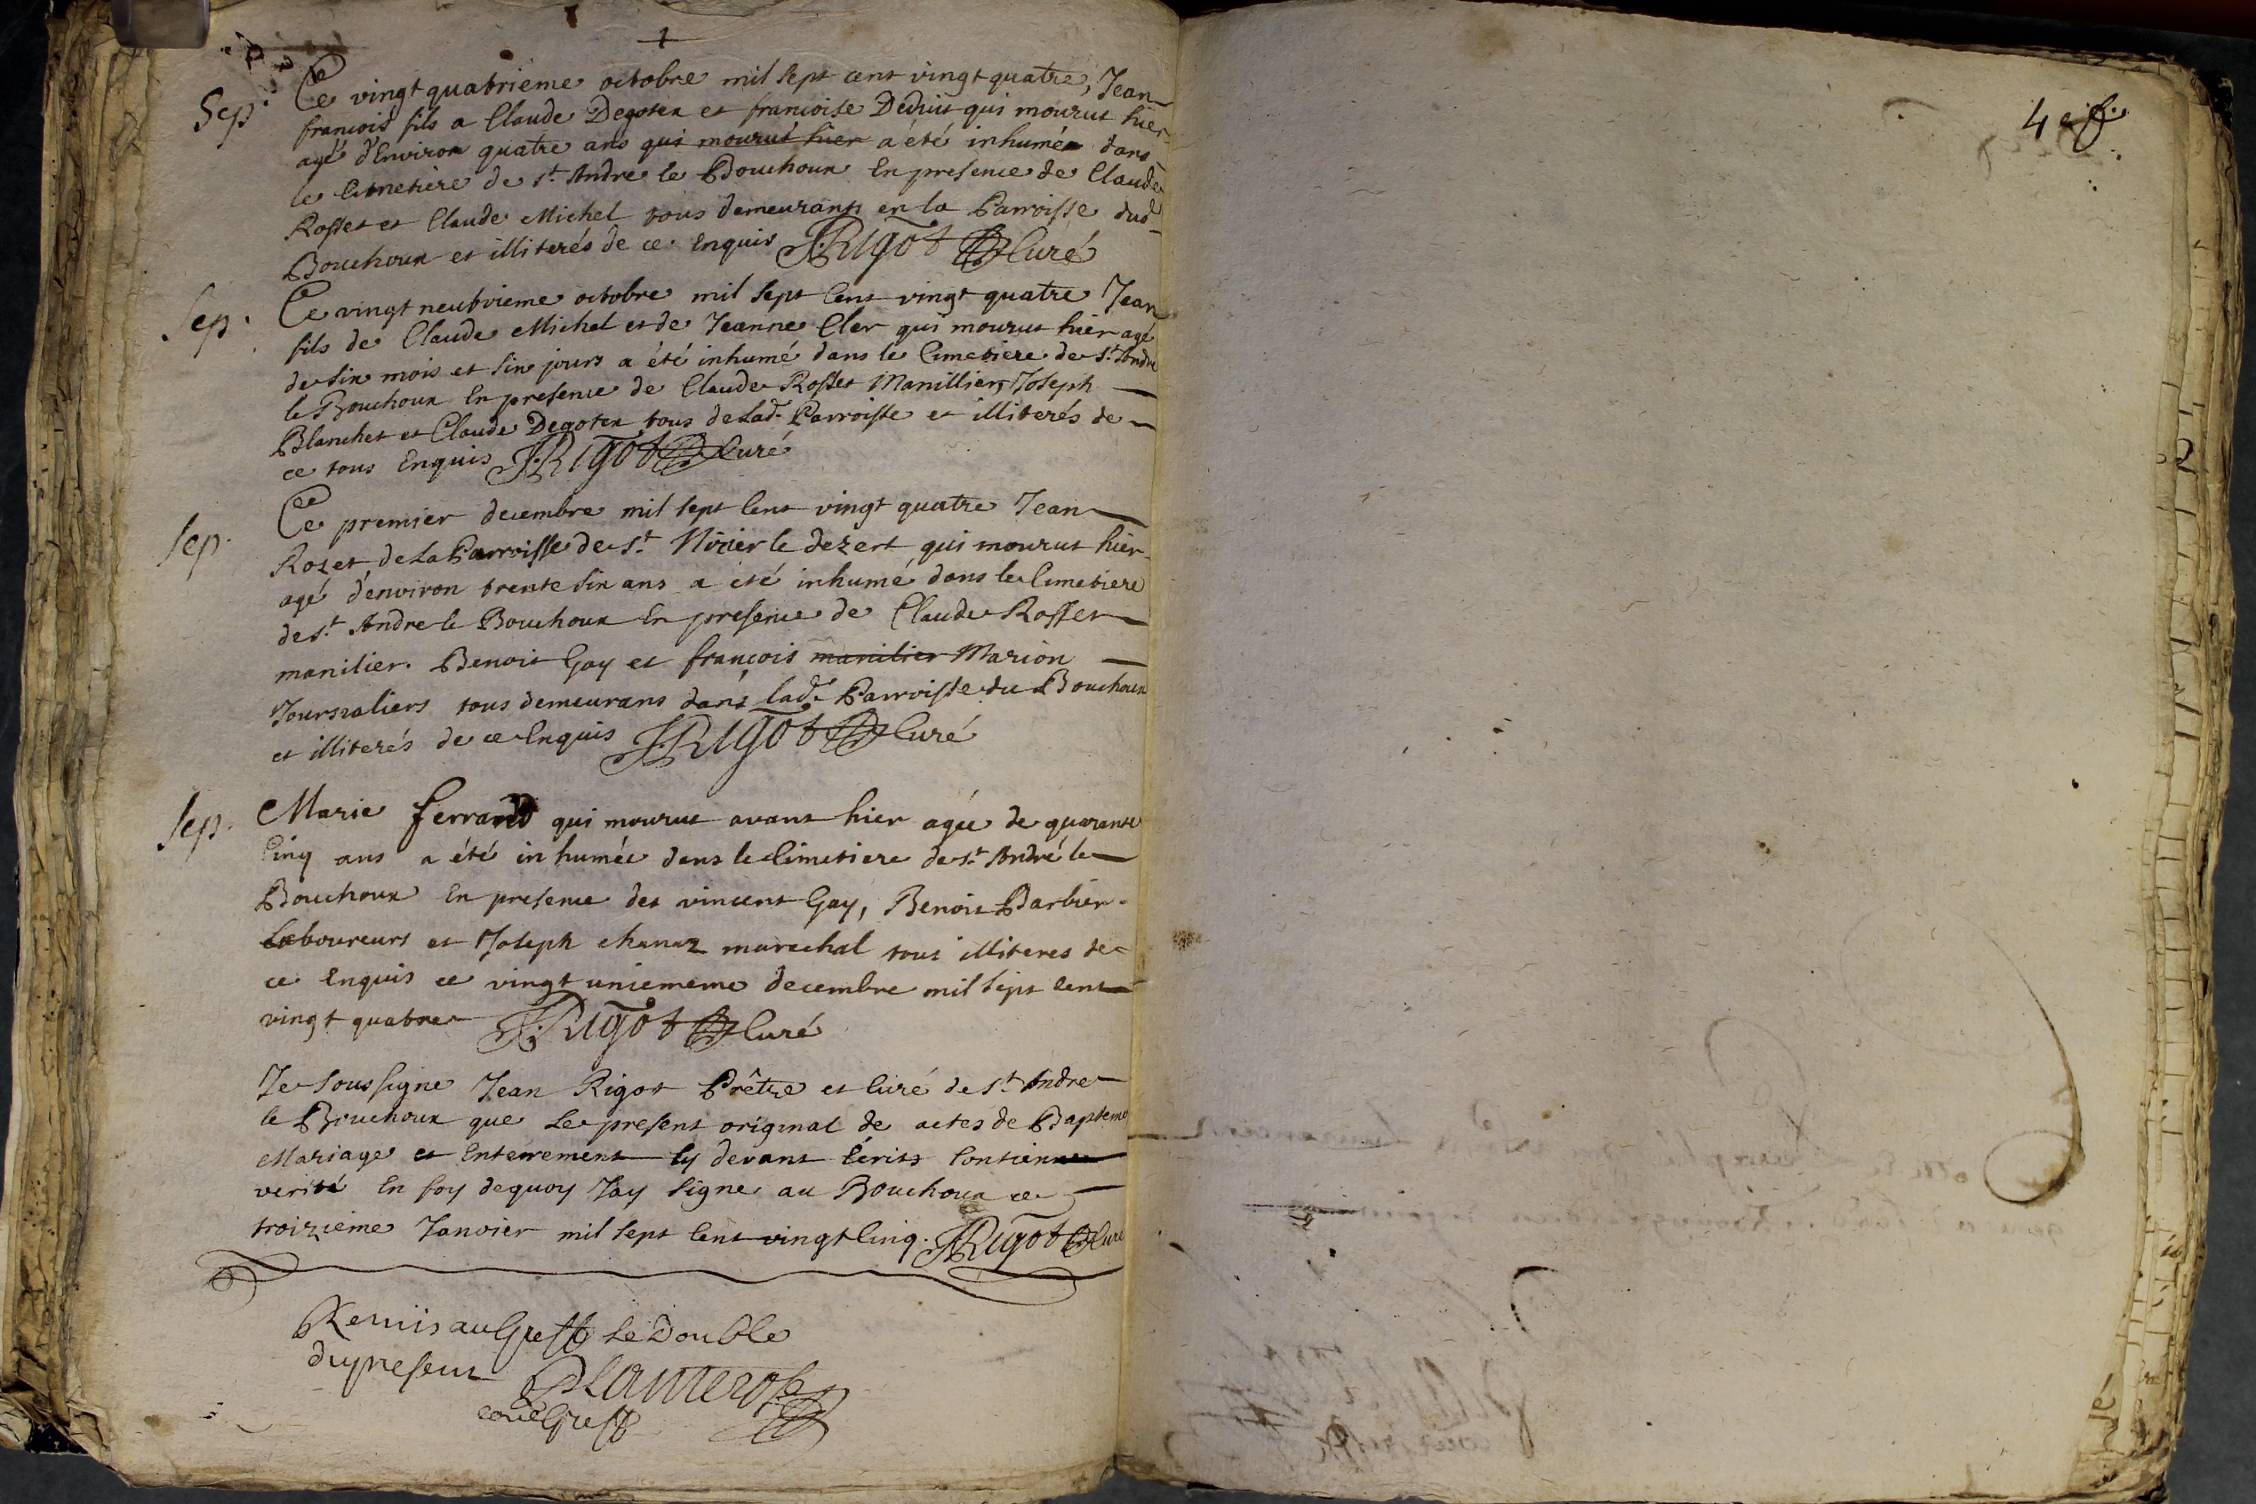 Sep. Ce vingt quatrieme octobre mil sept cent vingt quatre, Jean
francois fils a Claude Degoten et francoise Deduit qui mourut hier
agé d'Environ quatre ans qui mourut hier a été inhumé dans
le Cimetiere de st. Andre le Bouchoux En presence de Claude
Rosset et Claude Michel tous demeurants en la Parroisse dud.
Bouchoux et illiterés de ce Enquis JRigot Curé
Sep. Ce vingt neubvieme octobre mil sept Cent vingt quatre Jean
fils de Claude Michel et de Jeanne Cler qui mourut hier agé
de six mois et six jours a été inhumé dans le Cimetiere de st. Andre
le Bouchoux En presence de Claude Rosset Manillier, Joseph
Blanchet et Claude Degoten tous de Lad. Parroisse et illiterés de
ce tous Enquis JRigot Curé
Sep. Ce premier decembre mil sept Cent vingt quatre Jean
Rozet de La Parroisse de st. Nizier le dezert qui mourut hier
agé d'environ trente six ans a été inhumé dans le Cimetiere
de st. Andre le Bouchoux En presence de Claude Rosset
manilier. Benoit Gay et francois manilier Marion
Journaliers tous demeurans dans Lad. Parroisse du Bouchoux
et illiterés de ce Enquis JRigot Curé
Sep. Marie ferrand qui mourut avant hier agée de quarante
Cinq ans a été inhumée dans le Cimetiere de st. André le
Bouchoux En presence des vincent Gay, Benoit Barbier
Laboureurs et Joseph chanaz marechal tous illiteres de
ce Enquis ce vingt uniememe decembre mil sept Cent
vingt quatre JRigot Curé
Je sous signe Jean Rigot Prêtre et Curé de st. Andre
le Bouchoux que Le present original de actes de Bapteme
Mariage et Enterrement Cy devant Ecrits Contienne
verité En foy dequoy Jay signe au Bouchoux ce
troizieme Janvier mil sept Cent vingt Cinq. JRigot Curé
Remis au Greffe Le Double
du present
Greff